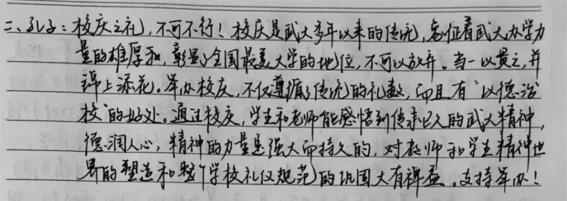 二、孔子：校庆之礼，不可不行！校庆是武大多年以来的传统，象征着武大办学力
量的雄厚和，彰显了全国最美大学的地位，不可以放弃。当一以贯之，并
锦上添花。举办校友，不仅遵循了传统的礼数，而且有“以德治
校”的好处。通过校庆，学生和老师能感悟到传承已久的武大精神，
德润人心，精神的力量是强大而持久的，对教师和学生精神世
界的塑造和整个学校礼仪规范的巩固大有裨益。支持举办！